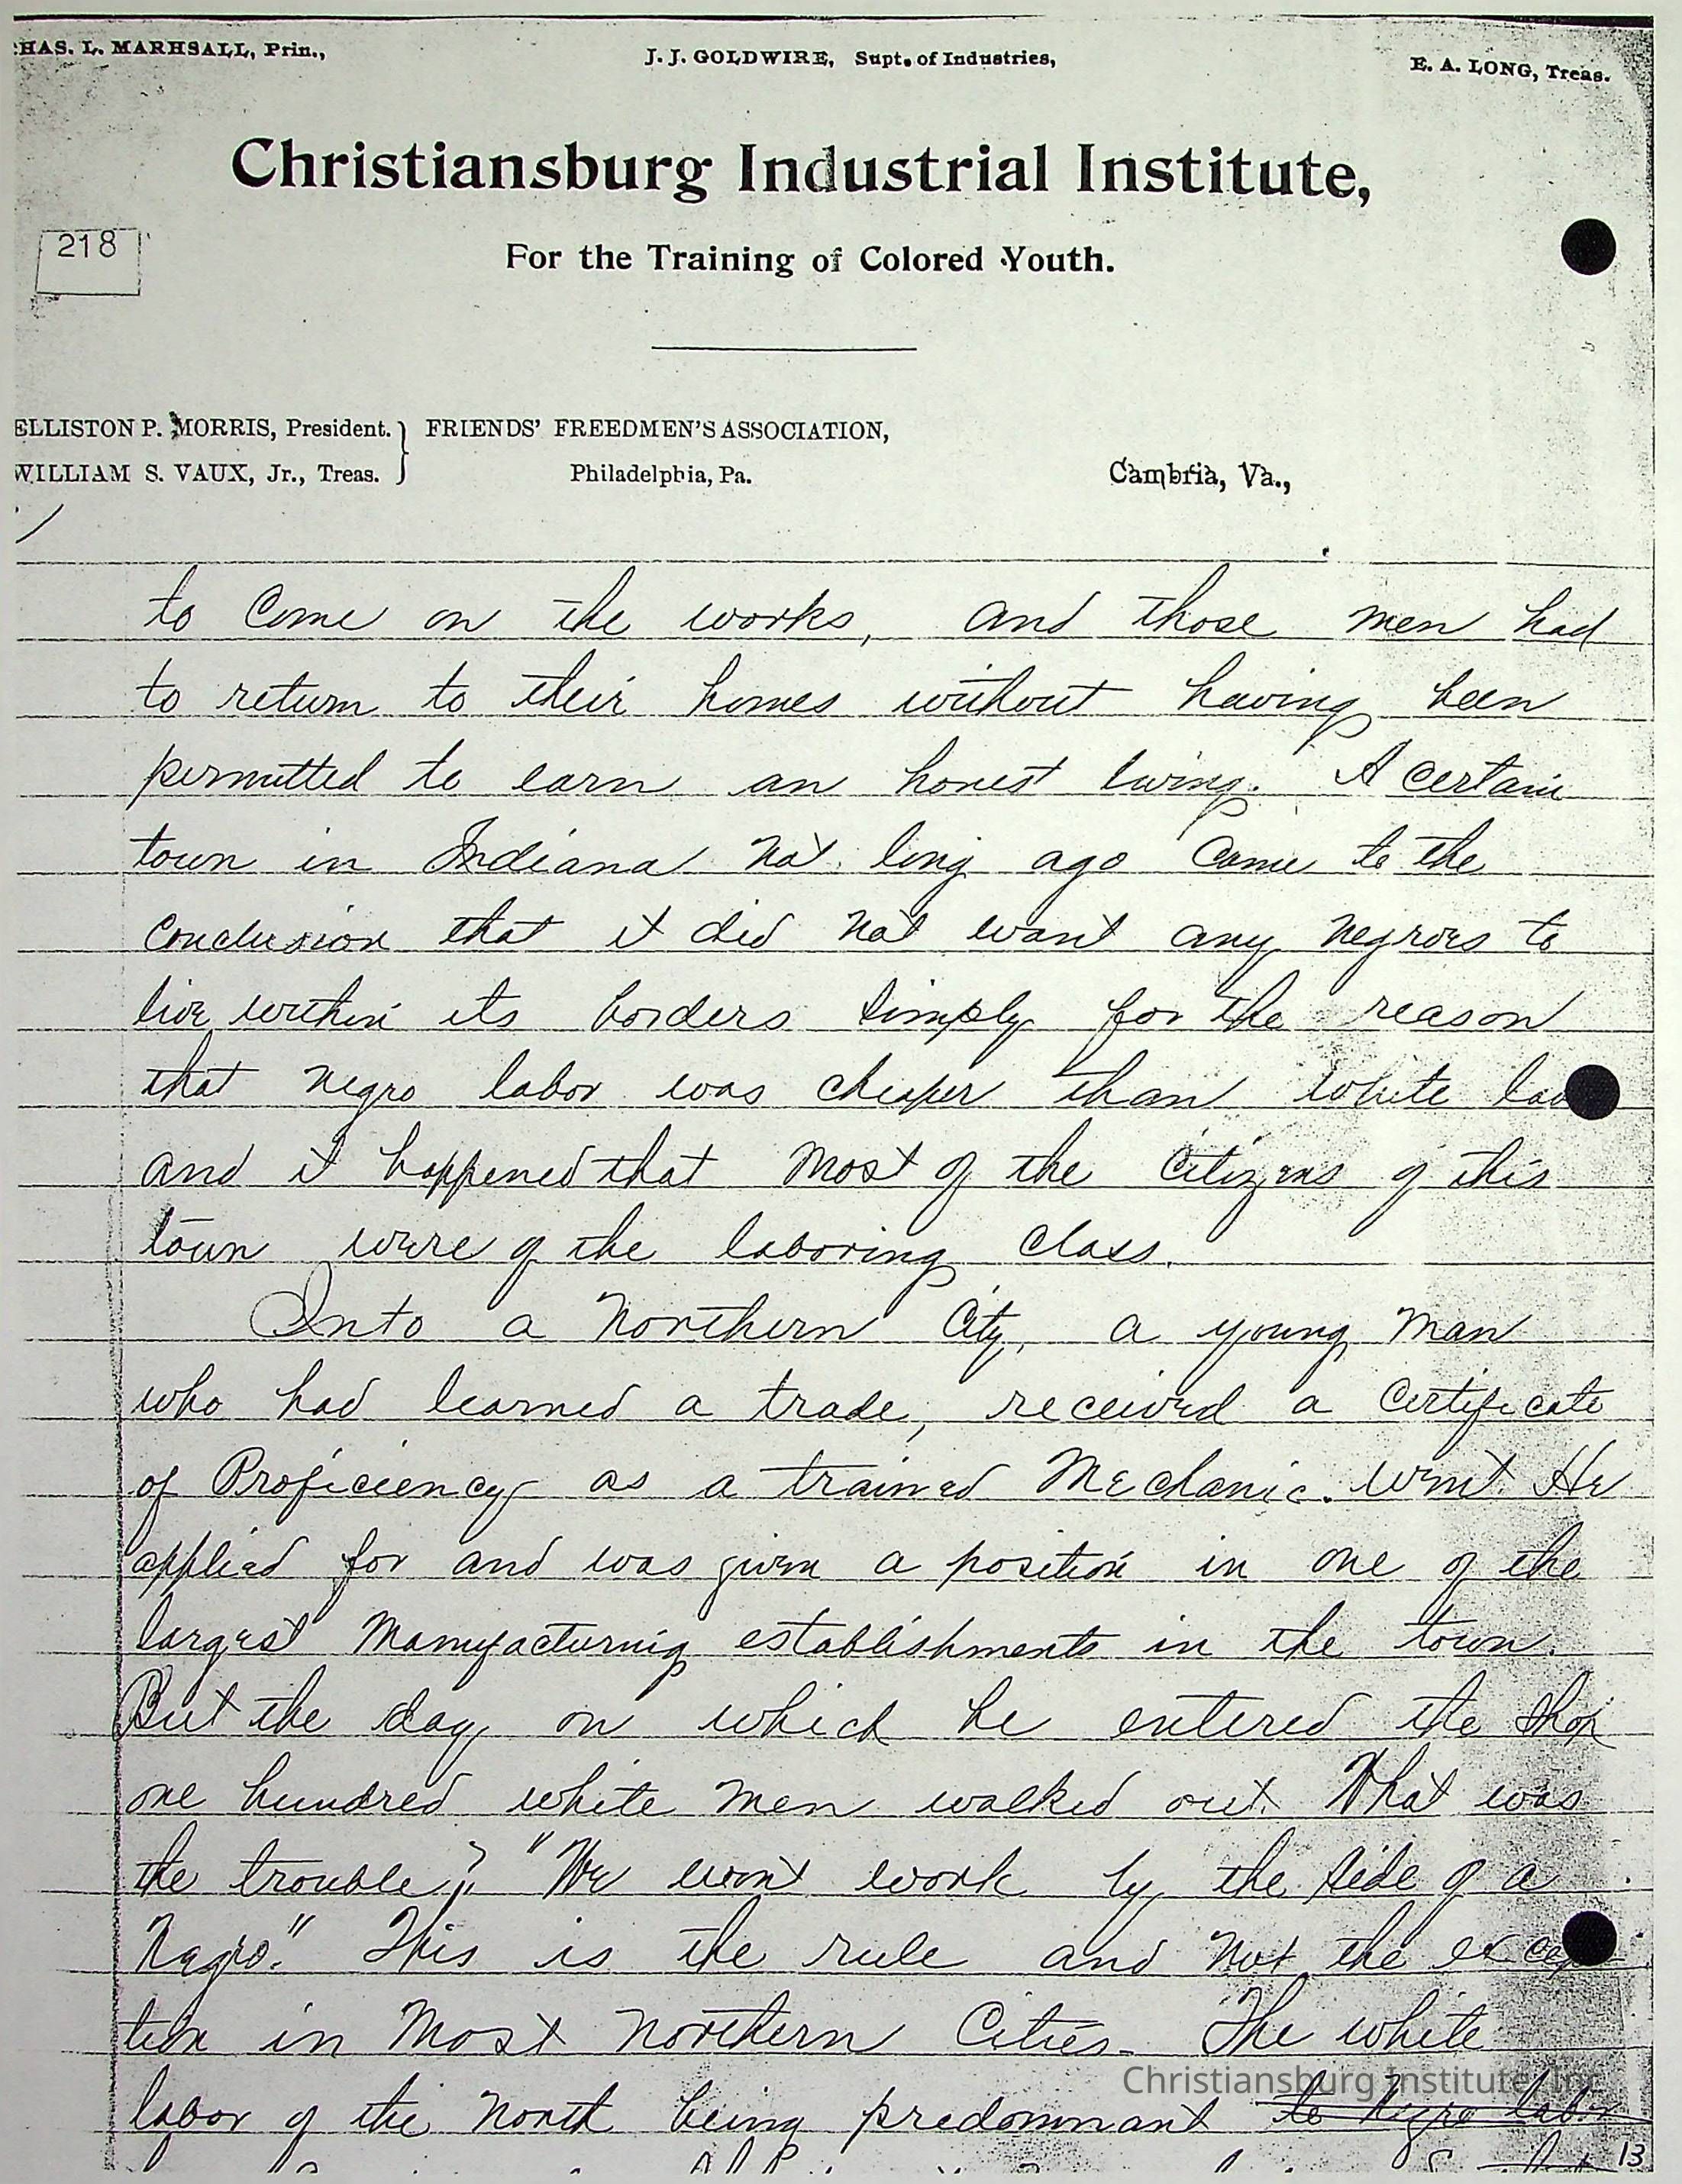 CHAS. L. MARHSALL, Prin.,
J. J. GOLDWIRE, Supt. of Industries,
E. A. LONG, Treas.
Christiansburg Industrial Institute,
218
For the Training of Colored Youth.
ELLISTON P. MORRIS, President. } FRIENDS' FREEDMEN'S ASSOCIATION,
WILLIAM S. VAUX, Jr., Treas. Philadelphia, Pa. Cambria, Va.,
to Come on the works, and those men had
to return to their homes without having been
permitted to earn an honest living. A certain
town in Indiana not long ago Came to the
Conclusion that it did not want any negroes to
live within its borders simply for the reason
that negro labor was cheaper than white
and it happened that most of the Citizens of this
town were of the laboring Class.
Into a Northern City, a young man
who had learned a trade, received a Certificate
of Proficiency as a trained Mechanic. went He
applied for and was given a position in one of the
largest Manufacturing establishments in the town.
But the day on which he entered the shop
one hundred white men walked out. What was
the trouble? "We won't work by the side of a
Negro." This is the rule and not the excep
tion in most Northern Cities. The white
labor of the North being predominant to Negro labor
13
Christiansburg Institute, Inc